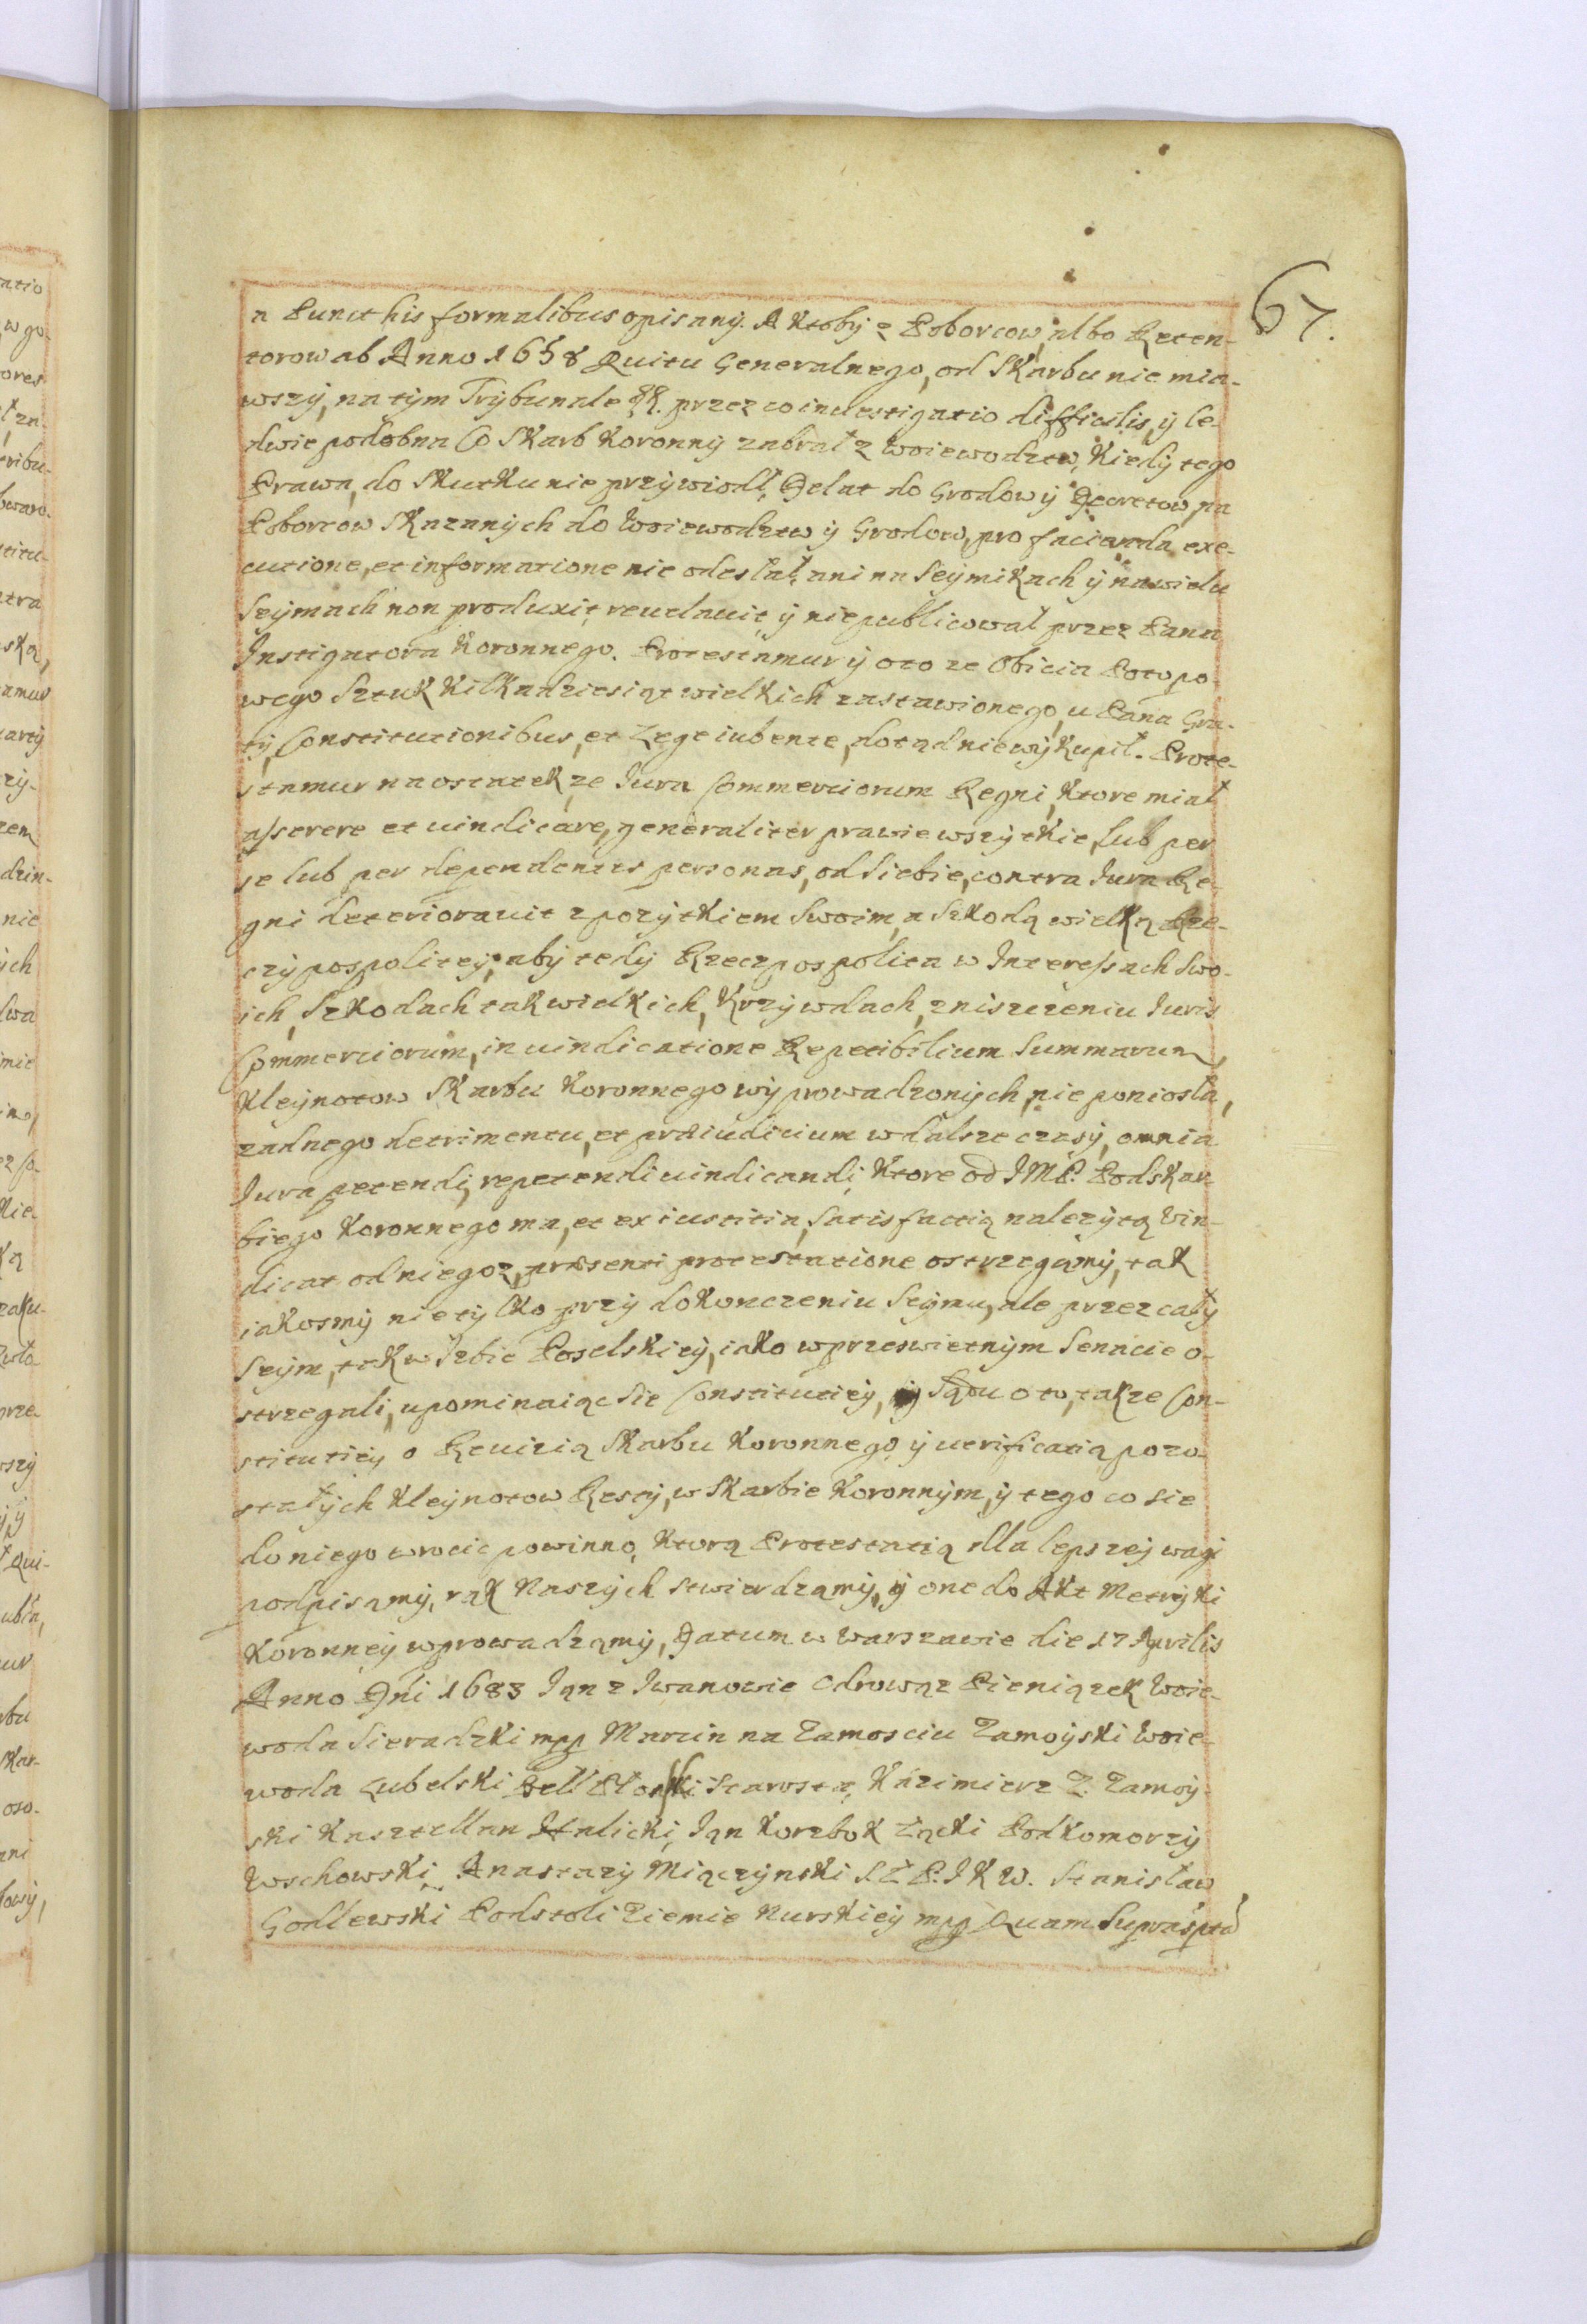 67.
a Punct his formalibus opisany. A Ktoby z Poborcow, albo Reten-
torow ab Anno 1658 Quitu Generalnego, od Skarbu nie mia-
wszÿ, na tÿm Trÿbunale &&. przez co inuestigatio difficilis, ÿ le-
dwie podobna Co Skarb Koronnÿ zabrał z Woiewodztw, Kiedÿ tego
Prawa, do Skutku nie przÿwiodł, Delat do Grodow ÿ Decretow na
Poborcow Skazanÿch do Woiewodztw ÿ Grodow, pro facienda exe-
cutione, et informatione nie odesłał, ani na Seÿmikach ÿ na wielu
Seÿmach non produxit, reuelauit, ÿ niepublicował przez Pana
Instigatora Koronnego. Protestamur ÿ oto ze Obicia Potopo-
wego Sztuk Kilkadziesiąt wielkich zastawionego, u Pana Gra-
tÿ, Constitutionibus, et Lege iubente, dotąd nie wÿkupił. Prote-
stamur na ostatek, ze Jura Commerciorum Regni, Ktore miał
asserere et uindicare, generaliter prawie wszÿtkie, lub per
se lub per dependentes personas, od siebie, contra Jura Re-
gni deteriorauit z pozÿtkiem Swoim, a Szkodą wielką Rze-
czÿpospolitey, abÿ tedÿ Rzeczpospolita w Interessach Swo-
ich, Szkodach tak wielkich, Krzÿwdach, zniszczeniu Juris
Commerciorum, in uindicatione Repetibilium Summarum,
Kleÿnotow Skarbu Koronnego wÿprowadzonÿch, nie poniosła,
zadnego detrimentu, et præiudicium w dalsze czasÿ, omnia
Jura petendi, repetendi uindicandi, Ktore od JMP. Podskar-
biego Koronnego ma, et ex iustitia, Satisfactią nalezÿtą Vin-
dicat od niegoz, præsenti protestatione ostrzegamÿ, tak
iakosmÿ nie tÿlko przÿ dokonczeniu Seÿmu, ale przez całÿ
Seÿm, tak w Izbie Poselskieÿ, iako w przeswietnÿm Senacie o-
strzegali, upominaiąc Sie Constitutieÿ, ÿ Sądu o to, takze Con-
stitutieÿ o Reuizią Skarbu Koronnego ÿ uerificatią pozo-
stałÿch Kleÿnotow Restÿ, w Skarbie Koronnÿm, ÿ tego co sie
do niego wrocic powinno, Ktorą Protestatią dla lepszeÿ wagi
podpisamÿ, rąk Naszÿch stwierdzamÿ, ÿ one do Akt Metrÿki
Koronneÿ wprowadzamÿ, Datum w Warszawie die 17 Aprilis
Anno Dni 1683 Jan z Iwanowic Odrowąz Pieniązek Woie-
woda Sieradzki mpp Marcin na Zamosciu Zamoÿski Woie-
woda Lubelski Starosta, Kazimierz Z. Zamoÿ-
ski Kasztellan Halicki, Jan Korzbok Łącki Podkomorzÿ
Wschowski, Anastazÿ Miączÿnski S Ł P. J K W. Stanisław
Godlewski Podstoli Ziemie Nurskieÿ mpp Quam Supraspta